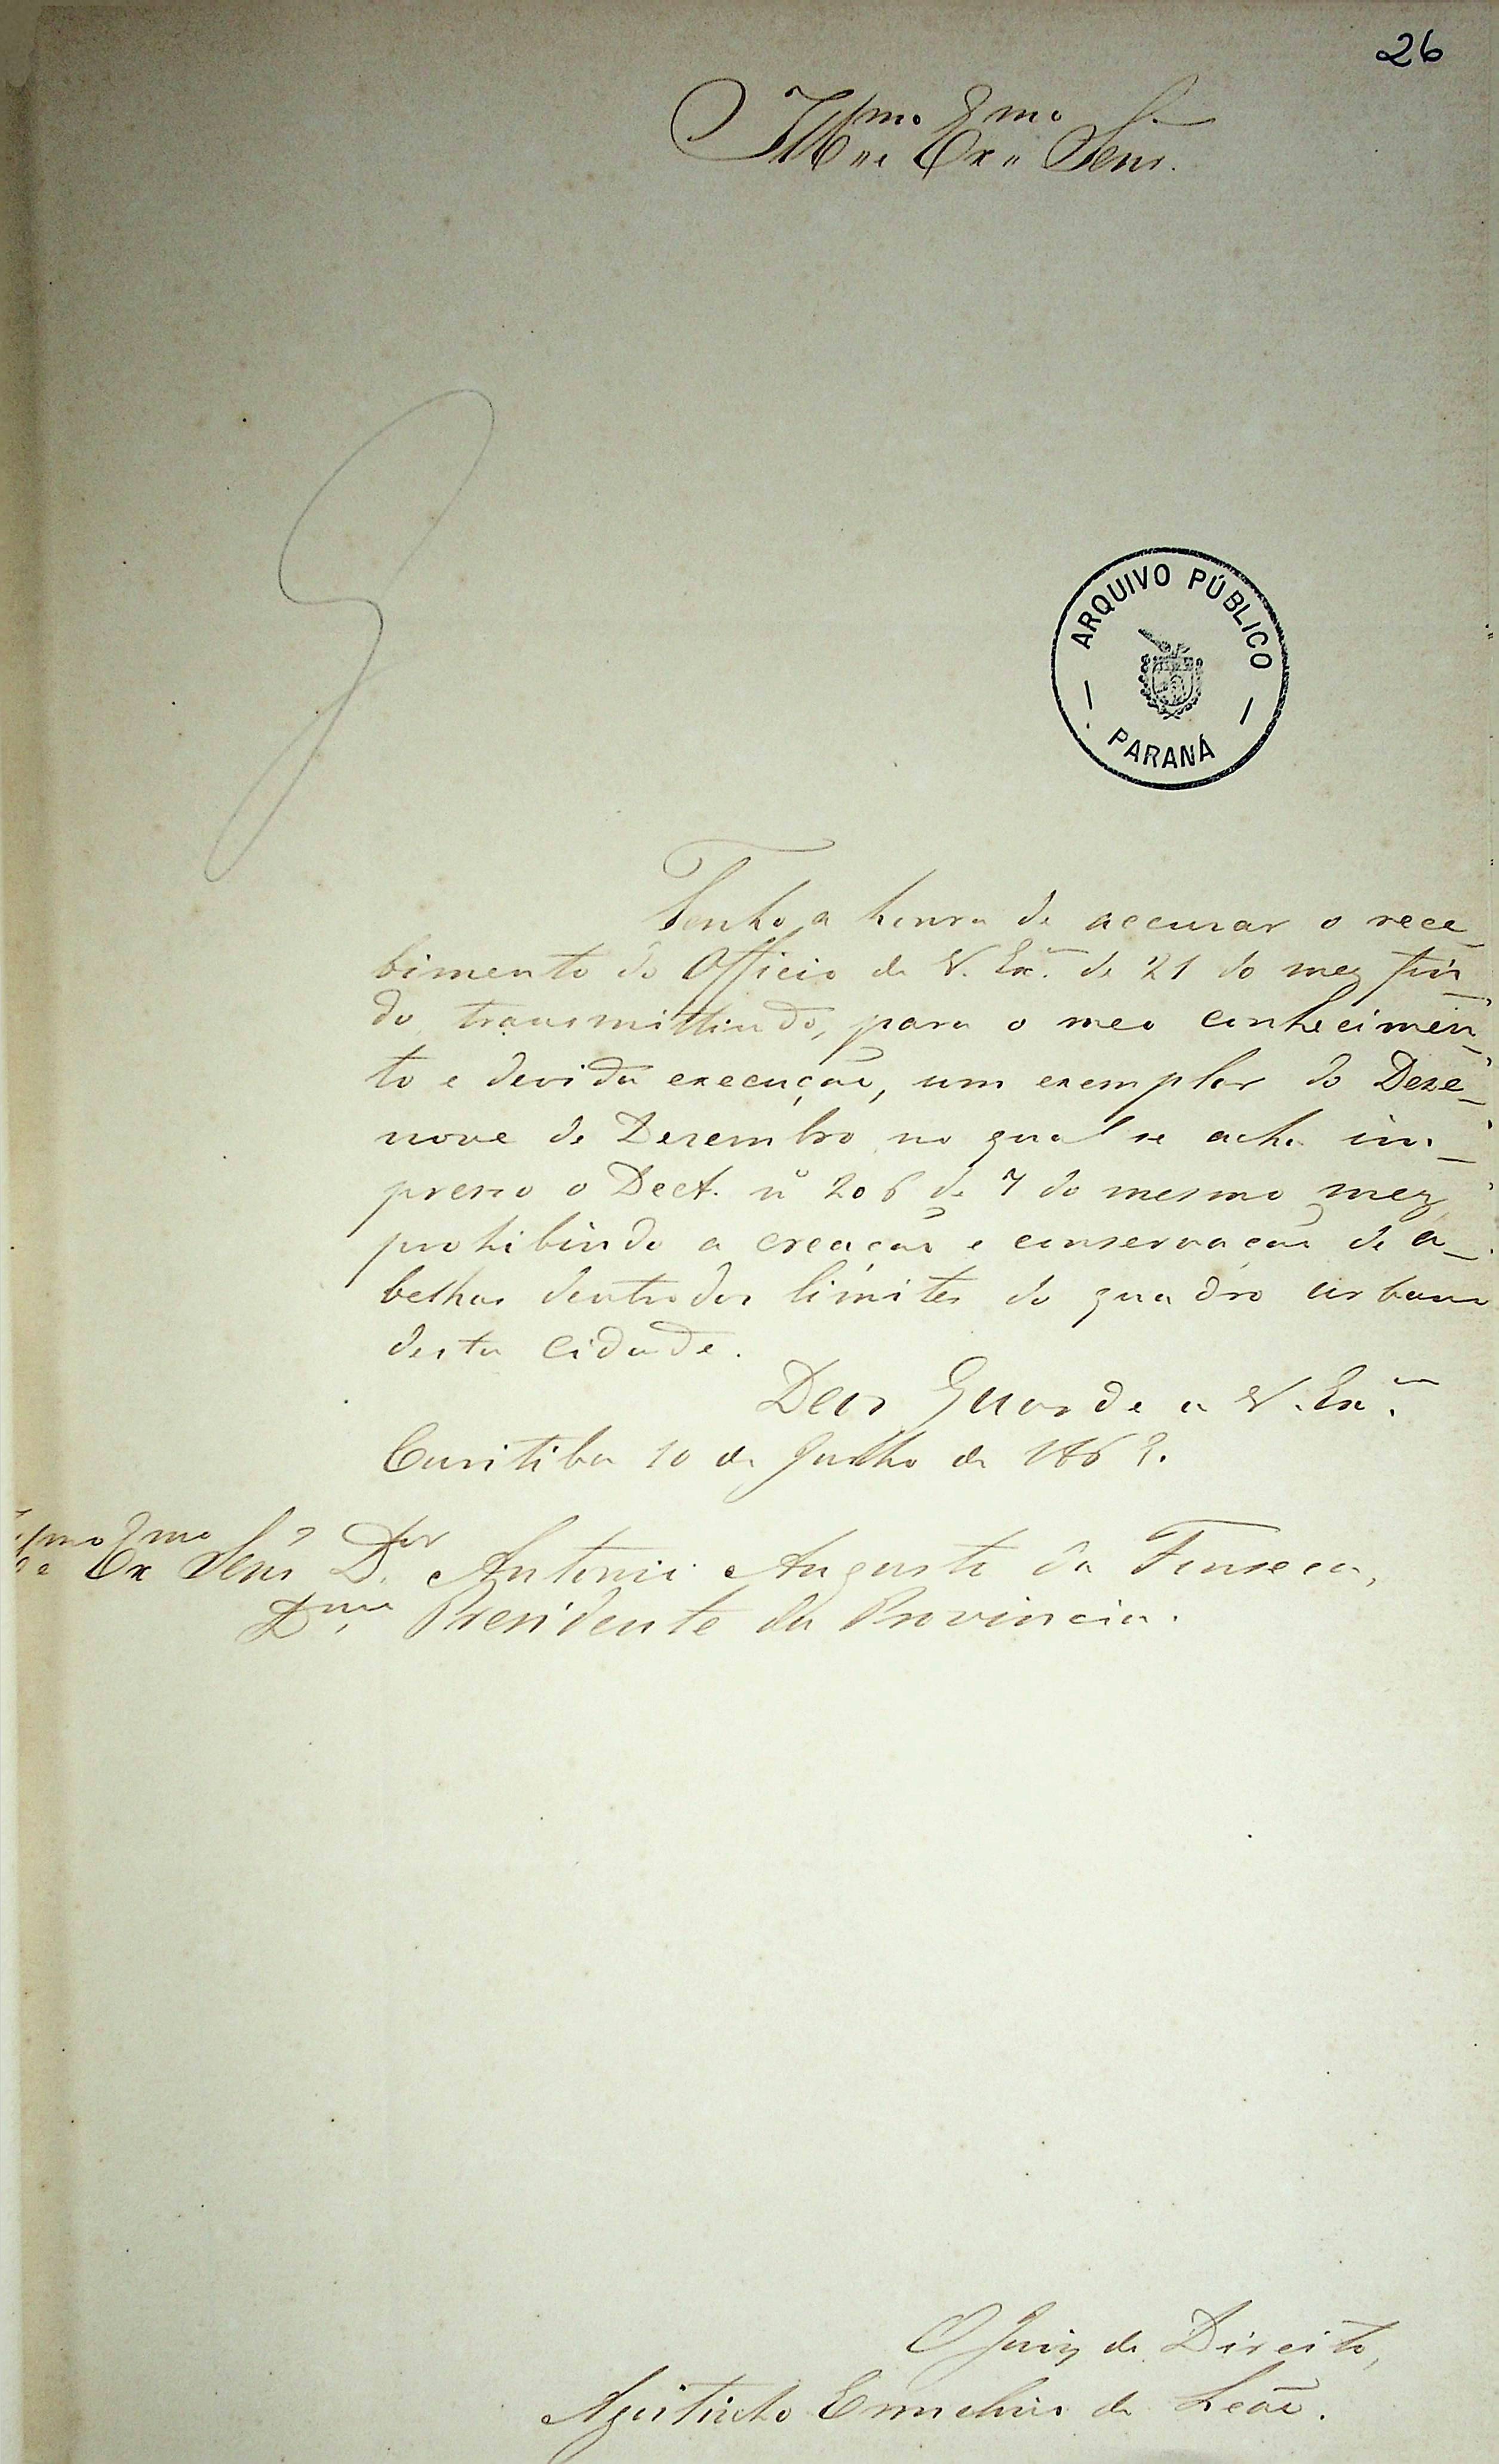 26
Illmo e Exmo Senr.
ARQUIVO PÚBLICO
PARANÁ
Tenho a honra de accusar o rece-
bimento do Officio de V. Exª. de 21 do mez fin-
do transmittindo, para o meo conhecimen-
to e devida execução, um exemplar do Deze-
nove de Dezembro no qual se acha im-
presso o Dect. nº 206 de 7 do mesmo mez,
prohibindo a creação e conservação de a-
belhas dentro dos limites do quadro urbano
desta cidade.
Deos Guarde a V. Exª.
Curitiba 10 de Julho de 1869.
Illmo e Exmo Senr Dor Antonio Augusto da Fonseca,
Dmo Presidente da Provincia.
O Juiz de Direito,
Agostinho Ermelino de Leão.